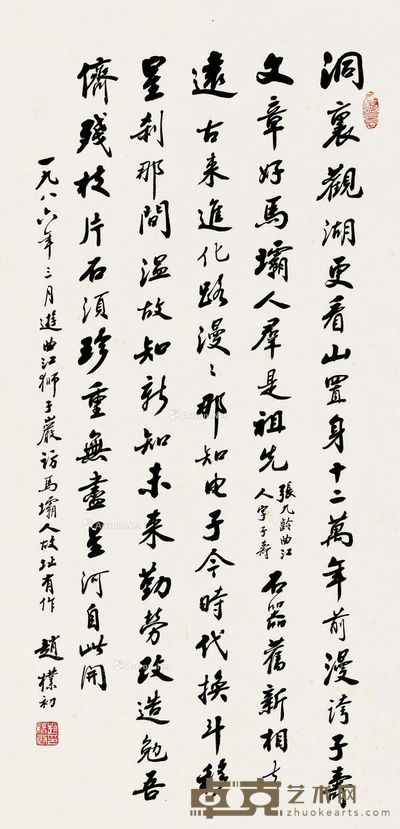 洞裏觀湖更看山置身十二萬年前漫誇子壽
文章好馬壩人群是祖先張九齡曲江人字子壽石器舊新相去
遠古來進化路漫漫那知電子今時代換斗移
星刹那間溫故知新知未來勤勞改造勉吾
儕殘枝片石須珍重無盡星河自此開
一九八六年三月遊曲江獅子巖訪馬壩人故址有作 趙樸初
卓克艺术网
www.zhuokearts.com